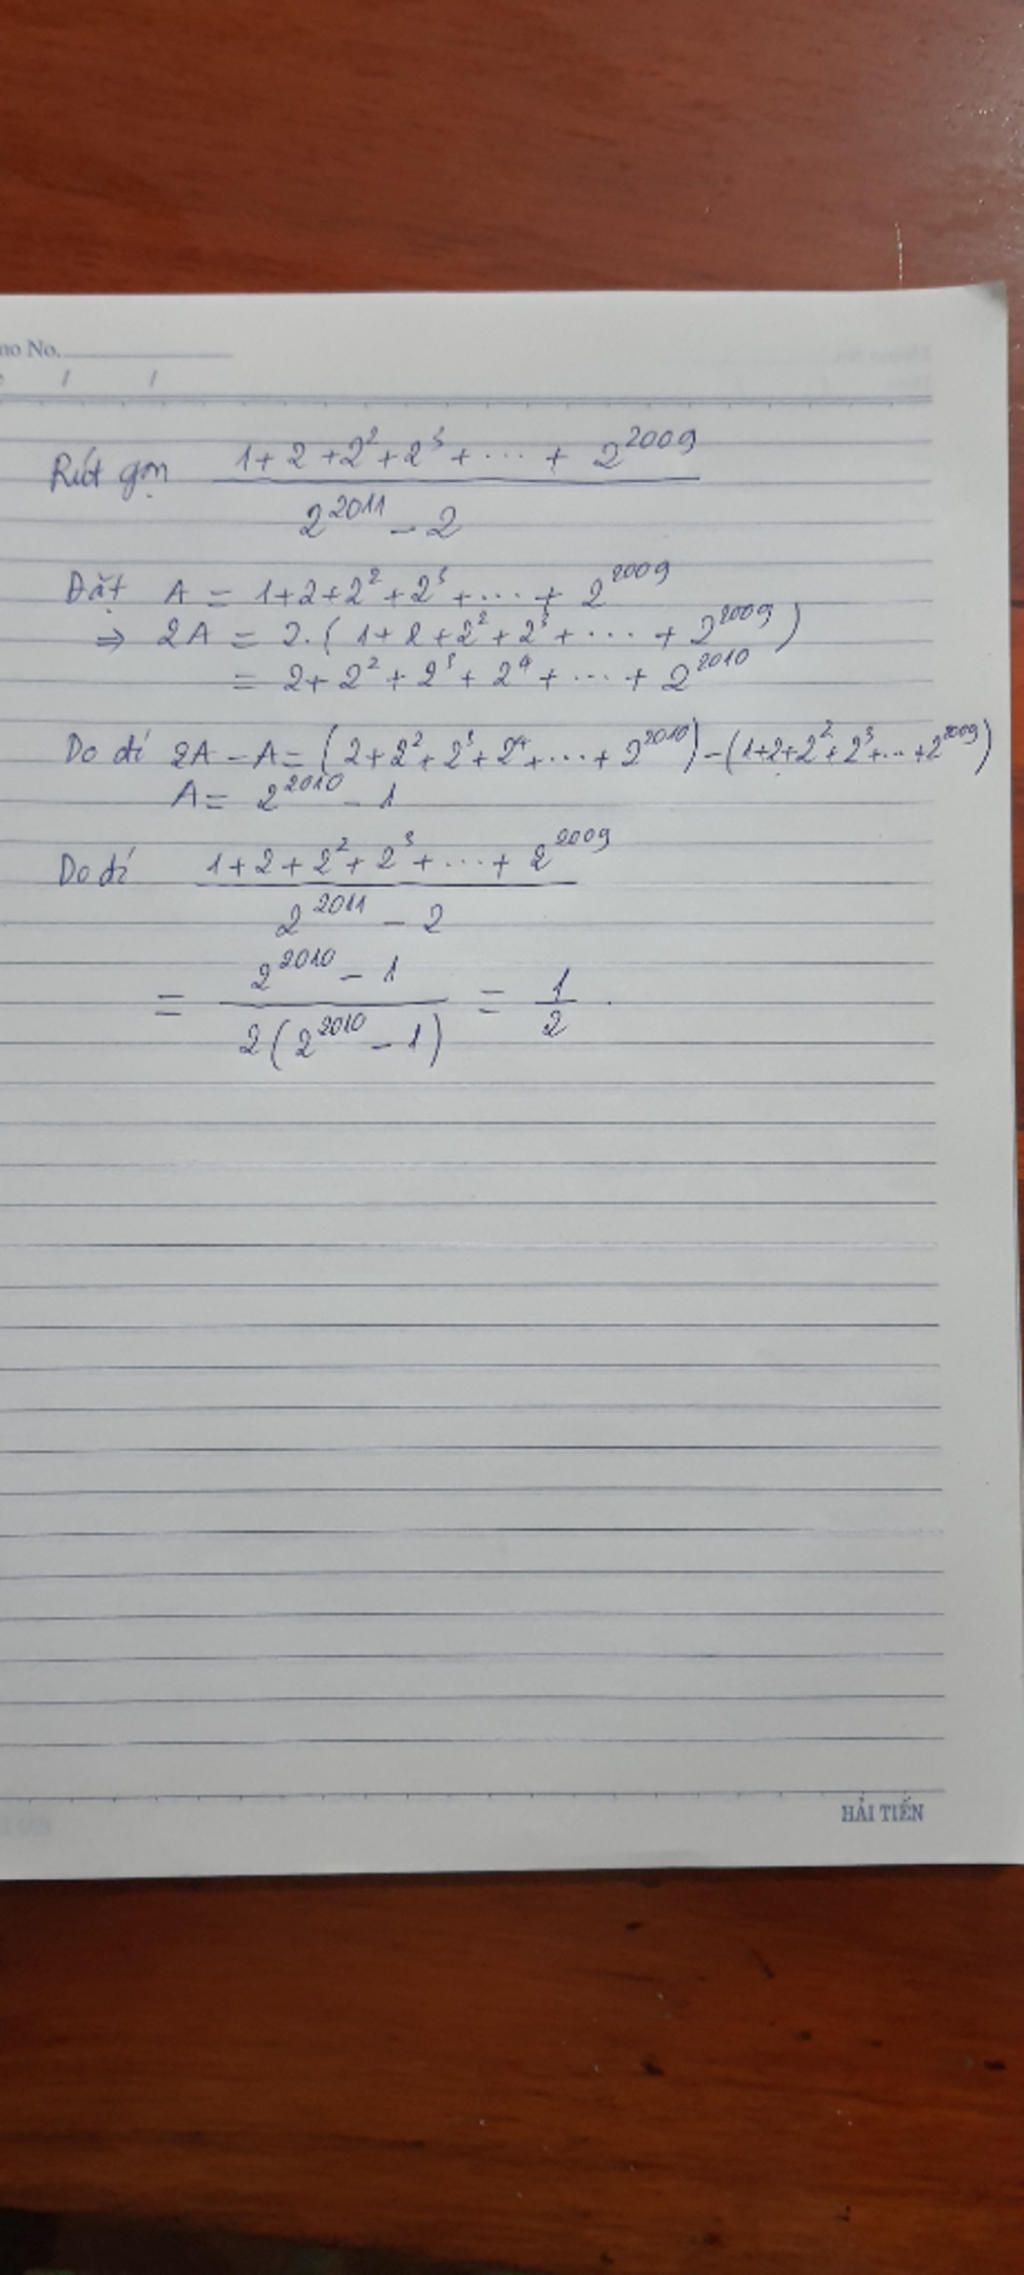 no No.
/ /
Rút gọn (1+2+2²+2³+...+2²⁰⁰⁹)/(2²⁰¹¹-2)
Đặt A = 1+2+2²+2³+...+2²⁰⁰⁹
⇒ 2A = 2.(1+2+2²+2³+...+2²⁰⁰⁹)
= 2+2²+2³+2⁴+...+2²⁰¹⁰
Do đó 2A-A=(2+2²+2³+2⁴+...+2²⁰¹⁰)-(1+2+2²+2³+...+2²⁰⁰⁹)
A= 2²⁰¹⁰-1
Do đó (1+2+2²+2³+...+2²⁰⁰⁹)/(2²⁰¹¹-2)
= (2²⁰¹⁰-1)/(2(2²⁰¹⁰-1)) = 1/2.
HẢI TIẾN